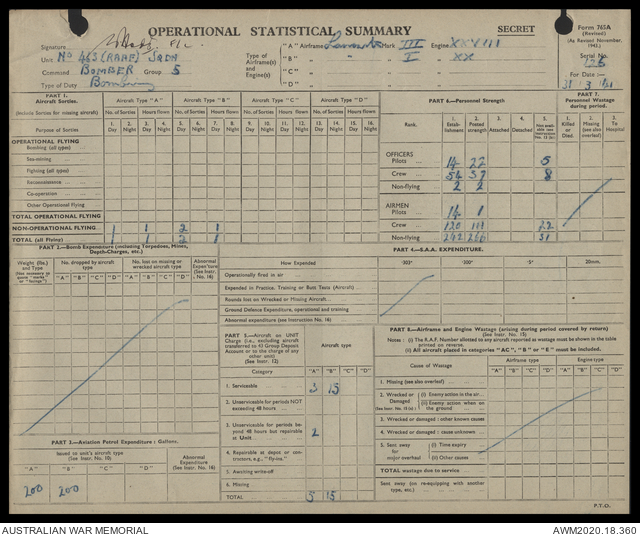 OPERATIONAL STATISTICAL SUMMARY
SECRET
Form 765A
(Revised)
(As Revised November, 1943.)
Signature
Unit No 463 (RAAF) SQDN
Command BOMBER Group 5
Type of Duty Bombing
Type of Airframe(s) and Engine(s)
"A" Airframe Lancaster Mark III Engine XXVIII
"B" " " I XX
"C"
"D"
Serial No.
For Date
PART 1.
Aircraft Sorties.
(Include Sorties for missing aircraft)
Aircraft Type "A" Aircraft Type "B" Aircraft Type "C" Aircraft Type "D"
No. of Sorties Hours flown No. of Sorties Hours flown No. of Sorties Hours flown No. of Sorties Hours flown
Purpose of Sorties
1. Day 2. Night 3. Day 4. Night 5. Day 6. Night 7. Day 8. Night 9. Day 10. Night 11. Day 12. Night 13. Day 14. Night 15. Day 16. Night
OPERATIONAL FLYING
Bombing (all types)
Sea-mining
Fighting (all types)
Reconnaissance
Co-operation
Other Operational Flying
TOTAL OPERATIONAL FLYING
NON-OPERATIONAL FLYING 1 1 2 1
TOTAL (all flying) 1 1 2 1
PART 6.—Personnel Strength
Rank.
1. Establishment 2. Posted strength 3. Attached 4. Detached 5. Non available
OFFICERS
Pilots 14 22 5
Crew 54 37 8
Non-flying 2 2
AIRMEN
Pilots 14 1
Crew 120 22
Non-flying 31
PART 7.
Personnel Wastage during period.
1. Killed or Died. 2. Missing (see also overleaf) 3. To Hospital
PART 2.—Bomb Expenditure (including Torpedoes, Mines, Depth-Charges, etc.)
Weight (lbs.) and Type
No. dropped by aircraft type
No. lost on missing or wrecked aircraft type
Abnormal Expen'ture (See Instr. No. 16)
"A" "B" "C" "D" "A" "B" "C" "D"
PART 4.—S.A.A. EXPENDITURE.
How Expended ·303" ·300" ·5" 20mm.
Operationally fired in air
Expended in Practice, Training or Butt Tests (Aircraft)
Rounds lost on Wrecked or Missing Aircraft
Ground Defence Expenditure, operational and training
Abnormal expenditure (see Instruction No. 16)
PART 5.—Aircraft on UNIT Charge (i.e., excluding aircraft transferred to 43 Group Deposit Account or to the charge of any other unit)
(See Instr. 12)
Aircraft type
Category "A" "B" "C" "D"
1. Serviceable 3 15
2. Unserviceable for periods NOT exceeding 48 hours
3. Unserviceable for periods beyond 48 hours but repairable at Unit 2
4. Repairable at depot or contractors, e.g., "fly-ins."
5. Awaiting write-off
6. Missing
TOTAL 5 15
PART 8.—Airframe and Engine Wastage (arising during period covered by return)
(See Instr. No. 15)
Notes : (i) The R.A.F. Number allotted to any aircraft reported as wastage must be shown in the table printed on reverse.
(ii) All aircraft placed in categories "AC", "B" or "E" must be included.
Cause of Wastage
Airframe type Engine type
"A" "B" "C" "D" "A" "B" "C" "D"
1. Missing (see also overleaf)
2. Wrecked or Damaged (i) Enemy action in the air
(ii) Enemy action when on the ground
3. Wrecked or damaged : other known causes
4. Wrecked or damaged : cause unknown
5. Sent away for major overhaul (i) Time expiry
(ii) Other causes
TOTAL wastage due to service
Sent away (on re-equipping with another type, etc.)
PART 3.—Aviation Petrol Expenditure : Gallons.
Issued to unit's aircraft type
(See Instr. No. 10)
Abnormal Expenditure (See Instr. No. 16)
"A" "B" "C" "D"
200 200
P.T.O.
AUSTRALIAN WAR MEMORIAL
AWM2020.18.360